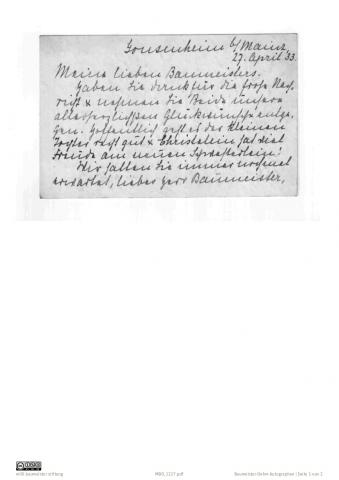 Gonsenheim b/Mainz
27. April 33.
Meine lieben Baumeisters.
Haben Sie Dank für die frohe Nach-
richt & nehmen Sie Beide unsere
allerherzlichsten Glückwünsche entge-
gen. Hoffentlich geht es der kleinen
Tochter recht gut & Christelein hat viel
Freude am neuen Schwesterlein!
Wir hatten Sie immer nochmal
erwartet, lieber Herr Baumeister,
willi baumeister stiftung
Baumeister-Dahm Autographen | Seite 1 von 2